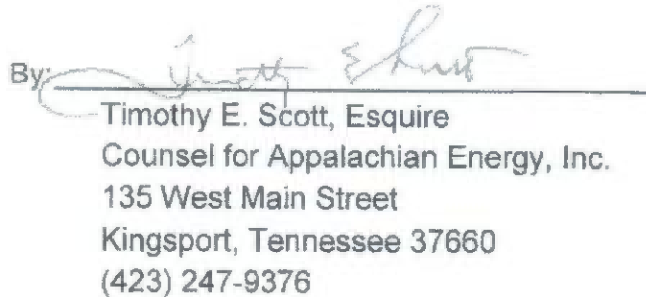 By: Timothy E Scott
Timothy E. Scott, Esquire
Counsel for Appalachian Energy, Inc.
135 West Main Street
Kingsport, Tennessee 37660
(423) 247-9376